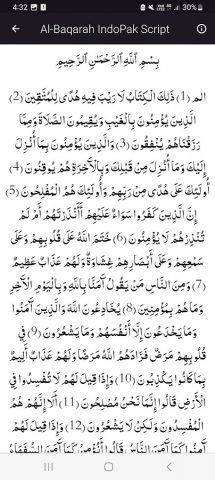 4:32
Al-Baqarah IndoPak Script
بِسْمِ اللَّهِ الرَّحْمَٰنِ الرَّحِيمِ
الم (1) ذَلِكَ الْكِتَابُ لَا رَيْبَ فِيهِ هُدًى لِلْمُتَّقِينَ (2)
الَّذِينَ يُؤْمِنُونَ بِالْغَيْبِ وَيُقِيمُونَ الصَّلَاةَ وَمِمَّا
رَزَقْنَاهُمْ يُنْفِقُونَ (3) وَالَّذِينَ يُؤْمِنُونَ بِمَا أُنْزِلَ
إِلَيْكَ وَمَا أُنْزِلَ مِنْ قَبْلِكَ وَبِالْآخِرَةِ هُمْ يُوقِنُونَ (4)
أُولَئِكَ عَلَى هُدًى مِنْ رَبِّهِمْ وَأُولَئِكَ هُمُ الْمُفْلِحُونَ (5)
إِنَّ الَّذِينَ كَفَرُوا سَوَاءٌ عَلَيْهِمْ أَأَنْذَرْتَهُمْ أَمْ لَمْ
تُنْذِرْهُمْ لَا يُؤْمِنُونَ (6) خَتَمَ اللَّهُ عَلَى قُلُوبِهِمْ وَعَلَى
سَمْعِهِمْ وَعَلَى أَبْصَارِهِمْ غِشَاوَةٌ وَلَهُمْ عَذَابٌ عَظِيمٌ
(7) وَمِنَ النَّاسِ مَنْ يَقُولُ آمَنَّا بِاللَّهِ وَبِالْيَوْمِ الْآخِرِ
وَمَا هُمْ بِمُؤْمِنِينَ (8) يُخَادِعُونَ اللَّهَ وَالَّذِينَ آمَنُوا
وَمَا يَخْدَعُونَ إِلَّا أَنْفُسَهُمْ وَمَا يَشْعُرُونَ (9) فِي
قُلُوبِهِمْ مَرَضٌ فَزَادَهُمُ اللَّهُ مَرَضًا وَلَهُمْ عَذَابٌ أَلِيمٌ
بِمَا كَانُوا يَكْذِبُونَ (10) وَإِذَا قِيلَ لَهُمْ لَا تُفْسِدُوا فِي
الْأَرْضِ قَالُوا إِنَّمَا نَحْنُ مُصْلِحُونَ (11) أَلَا إِنَّهُمْ هُمُ
الْمُفْسِدُونَ وَلَكِنْ لَا يَشْعُرُونَ (12) وَإِذَا قِيلَ لَهُمْ
آمِنُوا كَمَا آمَنَ النَّاسُ قَالُوا أَنُؤْمِنُ كَمَا آمَنَ السُّفَهَاءُ